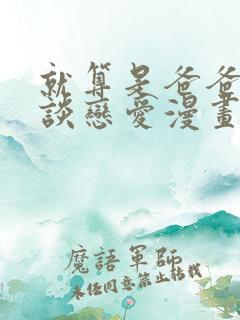 就算是爸爸
談戀愛漫畫
魔語軍師
未经同意禁止转载